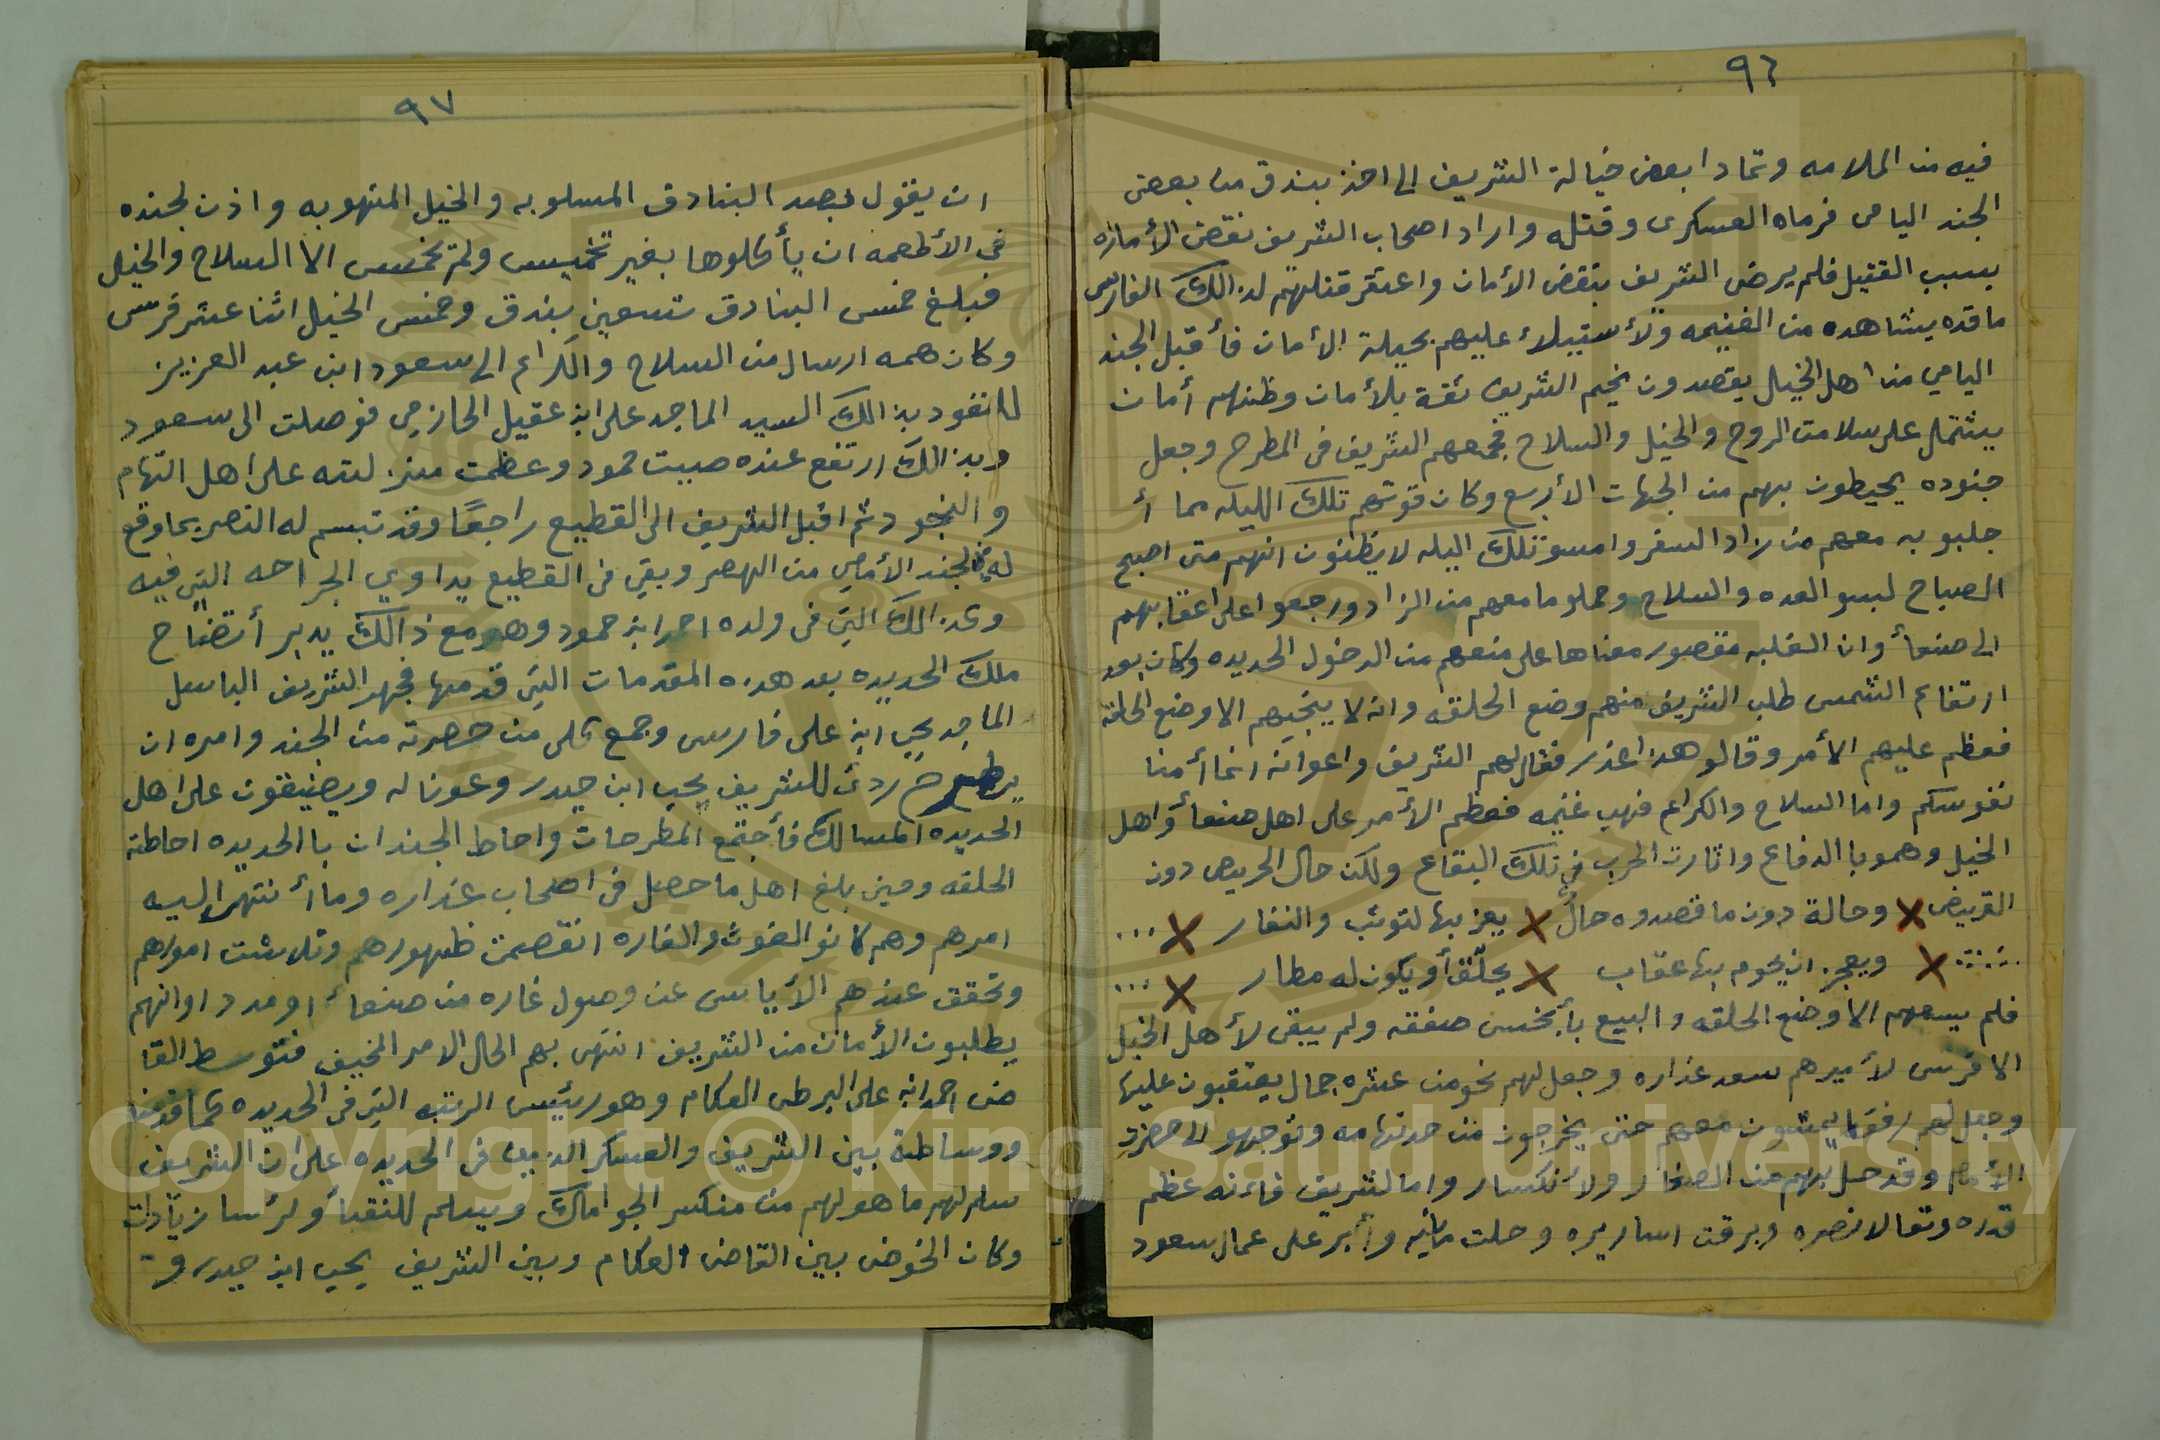 ٩٦
فيه من الملامه وتمادا بعض خيالة الشريف الى اخذ بندق من بعض
الجند اليامى فرماه العسكرى وقتله واراد اصحاب الشريف نقض الأمان
بسبب القتيل فلم يرض الشريف بنقض الأمان واعتقر قتلهم لذالك الفارس
ما قده يشاهده من الغنيمه ولأستيلاء عليهم بحيلة الأمان فأقبل الجند
اليامي من اهل الخيل يقصدون مخيم الشريف ثقة بلأمان وظنهم أمان
يشتمل على سلامت الروح والخيل والسلاح فجمعهم الشريف فى المطرح وجعل
جنوده يحيطون بهم من الجهات الأربع وكان قوتهم تلك الليله مما أ
جلبو به معهم من زاد السفر وامسو تلك اليله لا يظنون انهم متى اصبح
الصباح لبسو العده والسلاح وحملو ما معهم من الزاد ورجعوا على اعقابهم
الى صنعأ وان الغلبه مقصور معناها على منعهم من الدخول الحديده وكان بعد
ارتفاع الشمس طلب الشريف منهم وضع الحلقه وانه لا ينجيهم الا وضع الحلقه
فعظم عليهم الأمر وقالو هذا غدر فقال لهم الشريف واعوانه انما أمنا
نفوسكم واما السلاح والكراع فهي غنيمه فعظم الأمر على اهل صنعأ واهل
الخيل وهمو با الدفاع واثارت الحرب في تلك البقاع ولكن حال الحريص دون
القريض × وحالة دون ما قصدوه حالٌ × يعز بها لتوثب والنفار × ...
× ويعجز ان يحوم بها عقاب × يحلّق أو يكون له مطار × ...
فلم يسعهم الا وضع الحلقه والبيع بأبخس صفقه ولم يبقى لأهل الخيل
الا فرس لأميرهم سعد عذاره وجعل لهم نحو من عشره جمال يعتقبون عليها
وجعل لهم رفقا يمشون معهم حتى يخرجون من حد تهامه وتوجهو الى حضرة
الأمام وقد حل بهم من الصغار ولأنكسار واما لشريف فاءنه عظم
قدره وتعالا نصره وبرقت اساريره وحلت وأبر على عمال سعود
٩٧
ان يقول بصد البنادق المسلوبه والخيل المنهوبه واذن لجنده
في الأطعمه ان يأكلوها بغير تخميس ولم تخمس الا السلاح والخيل
فبلغ خمس البنادق تسعين بندق وخمس الخيل اثنا عشر فرس
وكان همه ارسال من السلاح والكراع الى سعود ابن عبد العزيز
للنفود بذالك السيد الماجد على ابن عقيل الحازمي فوصلت الى سعود
وبذالك ارتفع عنده صيت حمود وعظمت منزلته على اهل التهام
والنجود ثم اقبل الشريف الى القطيع راجعًا وقد تبسم له النصر بما وقع
له في الجند الأمامي من الهصر وبقي في القطيع يداوي الجراحه التي فيه
وكذالك التى فى ولده احمد ابن حمود وهو مع ذالك يدبر أفتضاح
ملك الحديده بعد هذه المقدمات التي قدمها فجهز الشريف الباسل
الماجد يحي ابن على فارس وجمع على من حضرته من الجند وامره ان
يطرح ردئ للشريف يحي ابن حيدر وعونا له ويضيقون على اهل
الحديده المسالك فأجتمع المطرحات واحاط الجندان با الحديده احاطة
الحلقه وحين بلغ اهل ما حصل فى اصحاب عذاره وما أنتهى اليه
امرهم وهم كانو الغوث والغاره انقصمت ظهورهم وتلاشت امورهم
وتحقق عندهم الأياس عن وصول غاره من صنعاء او مدد اوانهم
يطلبون الأمان من الشريف انتهى بهم الحال الامر المخيف فتوسط القا
ضى احمد ابن على البرطى العكام وهو رئيس الرتبه التى فى الحديده كما قدمنا
ووساطة بين الشريف والعسكر الذين فى الحديده على ان الشريف
سلم لهم ما هو لهم من منكسر الجوامك ويسلم للنقبأ ولرئسا زيادات
وكان الخوض بين القاضى العكام وبين الشريف يحي ابن حيدر و
Copyright © King Saud University